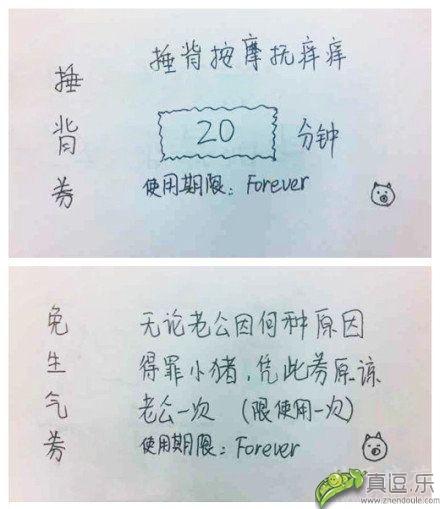 捶背券
捶背按摩抚痒痒
20 分钟
使用期限：Forever
免生气券
无论老公因何种原因
得罪小猪，凭此券原谅
老公一次（限使用一次）
使用期限：Forever
真逗.乐
www.zhendoule.com